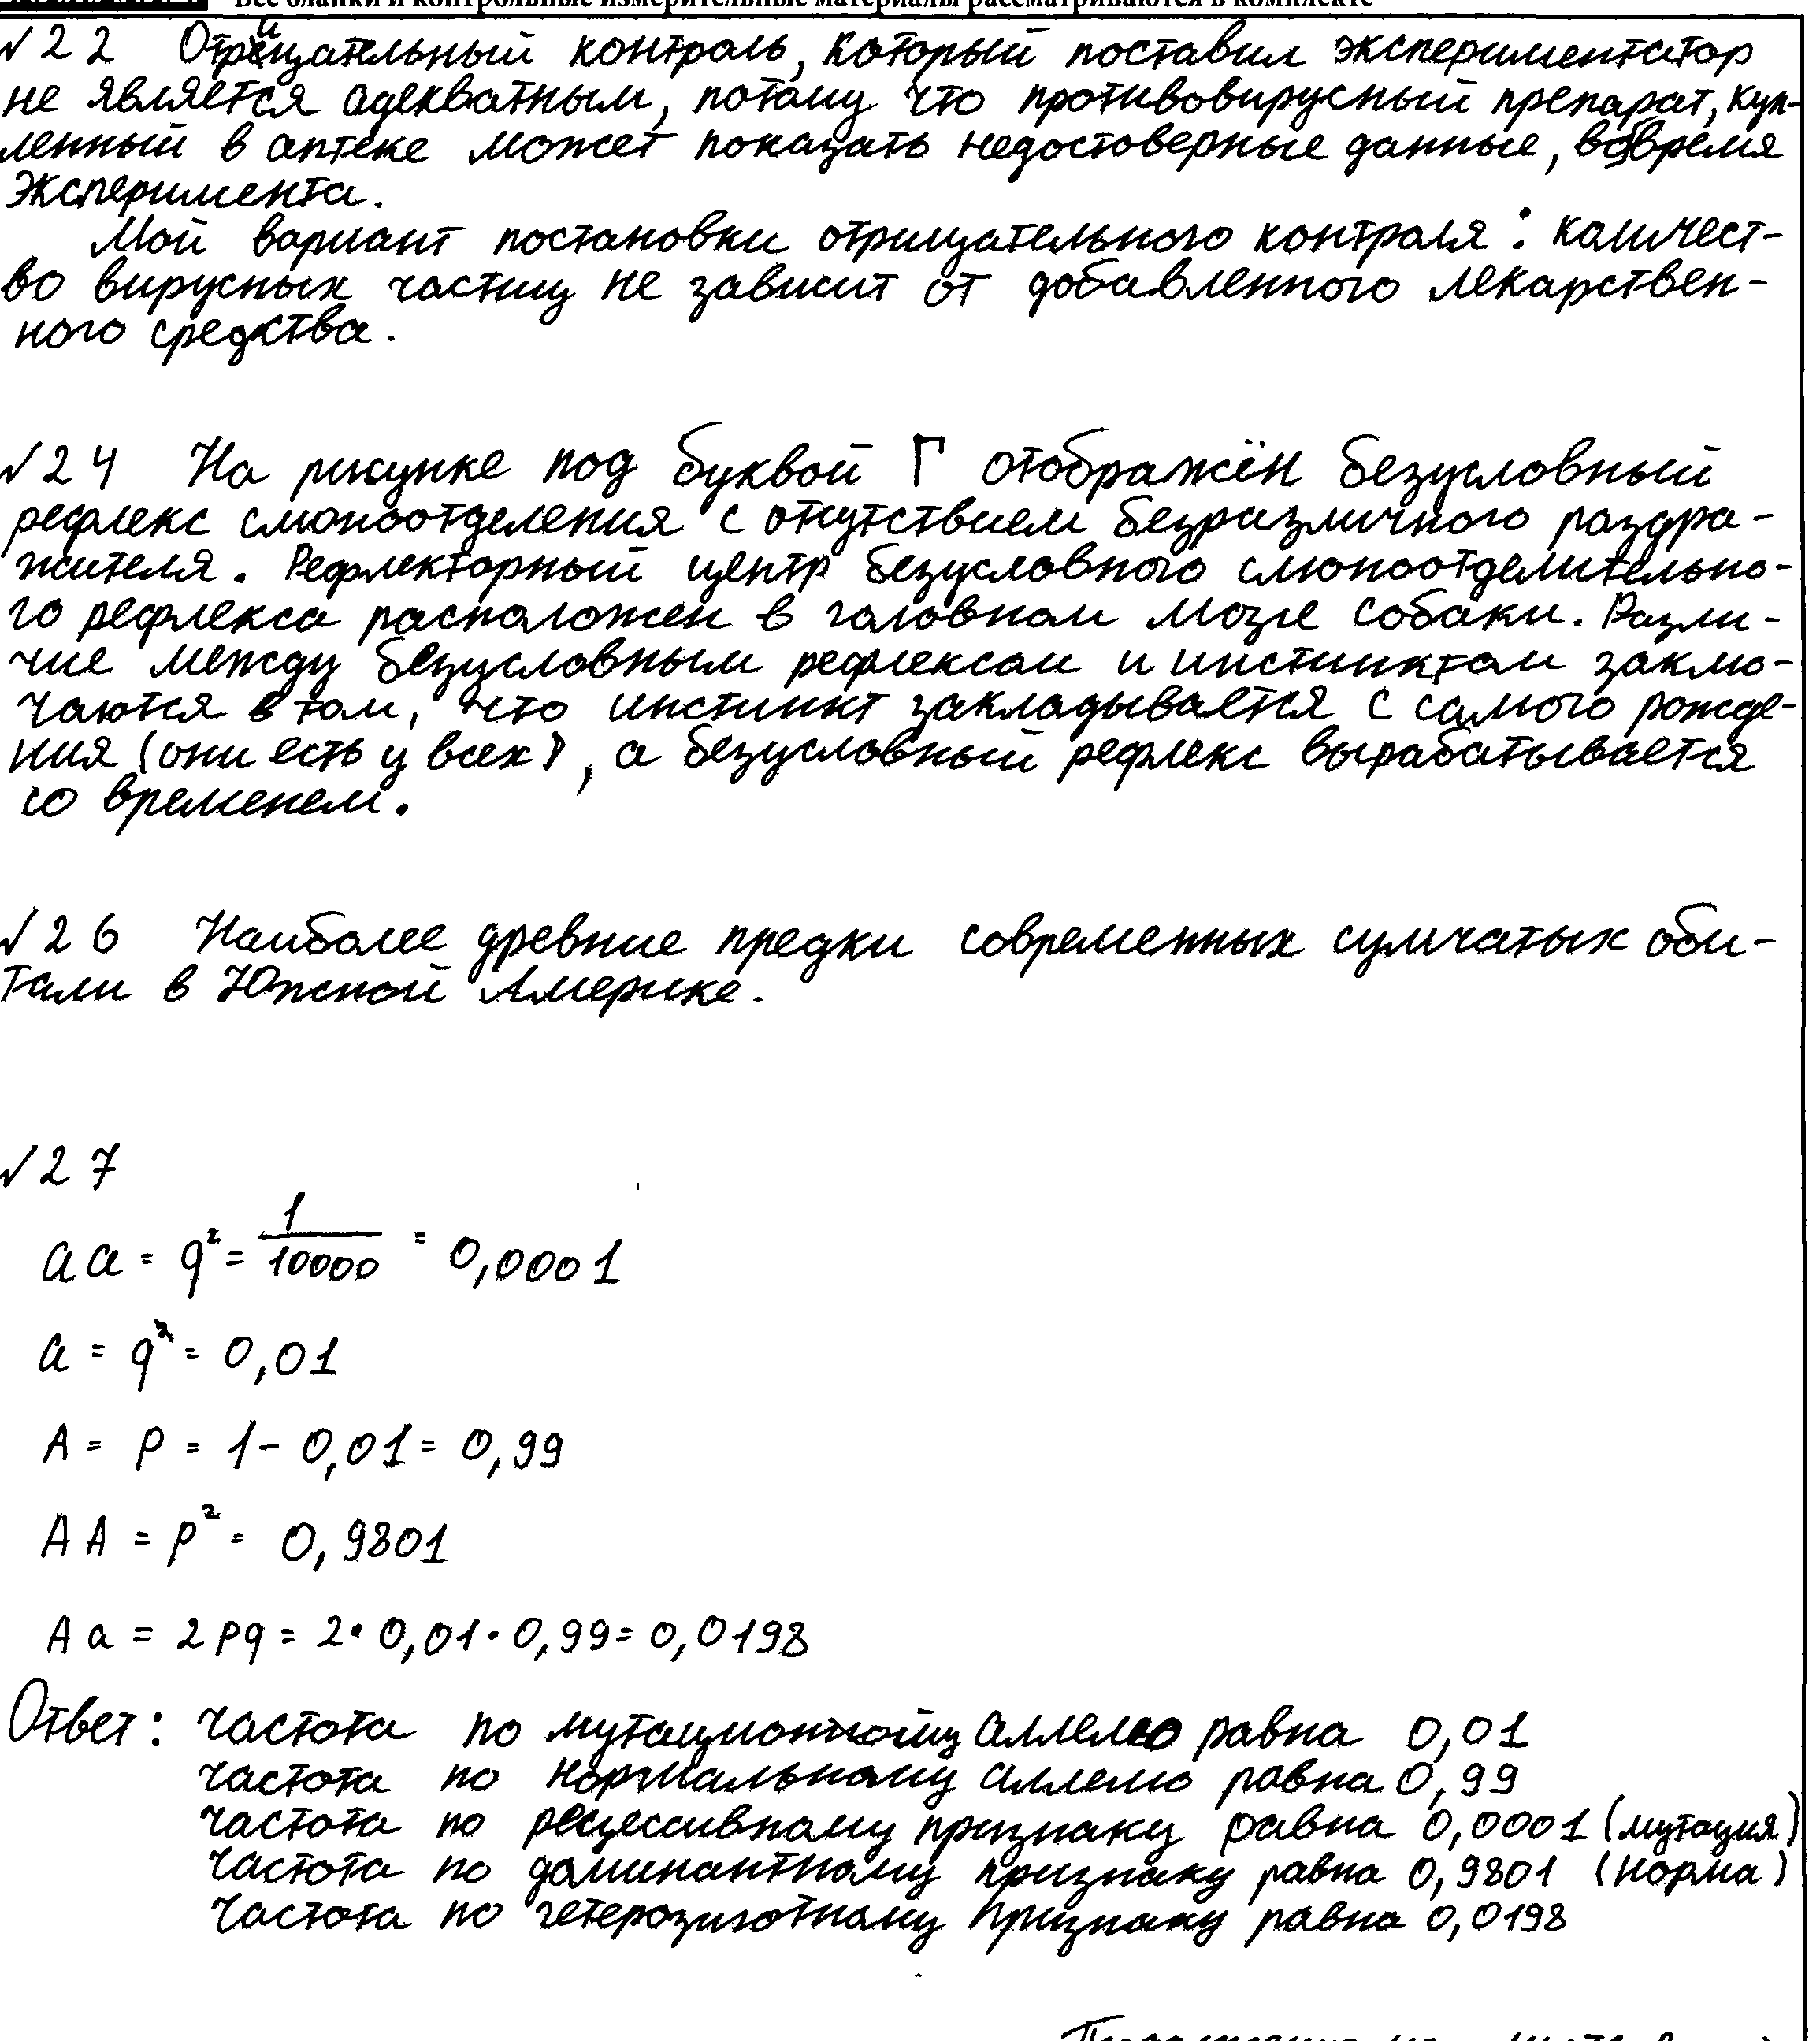 Все бланки и контрольные измерительные материалы рассматриваются в комплекте
№22 Отрицательный контроль, который поставил экспериментатор
не является адекватным, потому что противовирусный препарат, куп-
ленный в аптеке может показать недостоверные данные, вовремя
эксперимента.
Мой вариант постановки отрицательного контроля: количест-
во вирусных частиц не зависит от добавленного лекарствен-
ного средства.
№24 На рисунке под буквой Г отображён безусловный
рефлекс слюноотделения с отсутствием безразличного раздра-
жителя. Рефлекторный центр безусловного слюноотделительно-
го рефлекса расположен в головном мозге собаки. Разли-
чие между безусловным рефлексом и инстинктом заклю-
чаются в том, что инстинкт закладывается с самого рожде-
ния (они есть у всех), а безусловный рефлекс вырабатывается
со временем.
№26 Наиболее древние предки современных сумчатых оби-
тали в Южной Америке.
№27
aa = q² = 1/10000 = 0,0001
a = q = 0,01
A = p = 1 - 0,01 = 0,99
AA = p² = 0,9801
Aa = 2pq = 2·0,01·0,99 = 0,0198
Ответ: частота по мутационному аллелю равна 0,01
частота по нормальному аллелю равна 0,99
частота по рецессивному признаку равна 0,0001 (мутация)
частота по доминантному признаку равна 0,9801 (норма)
Частота по гетерозиготному признаку равна 0,0198